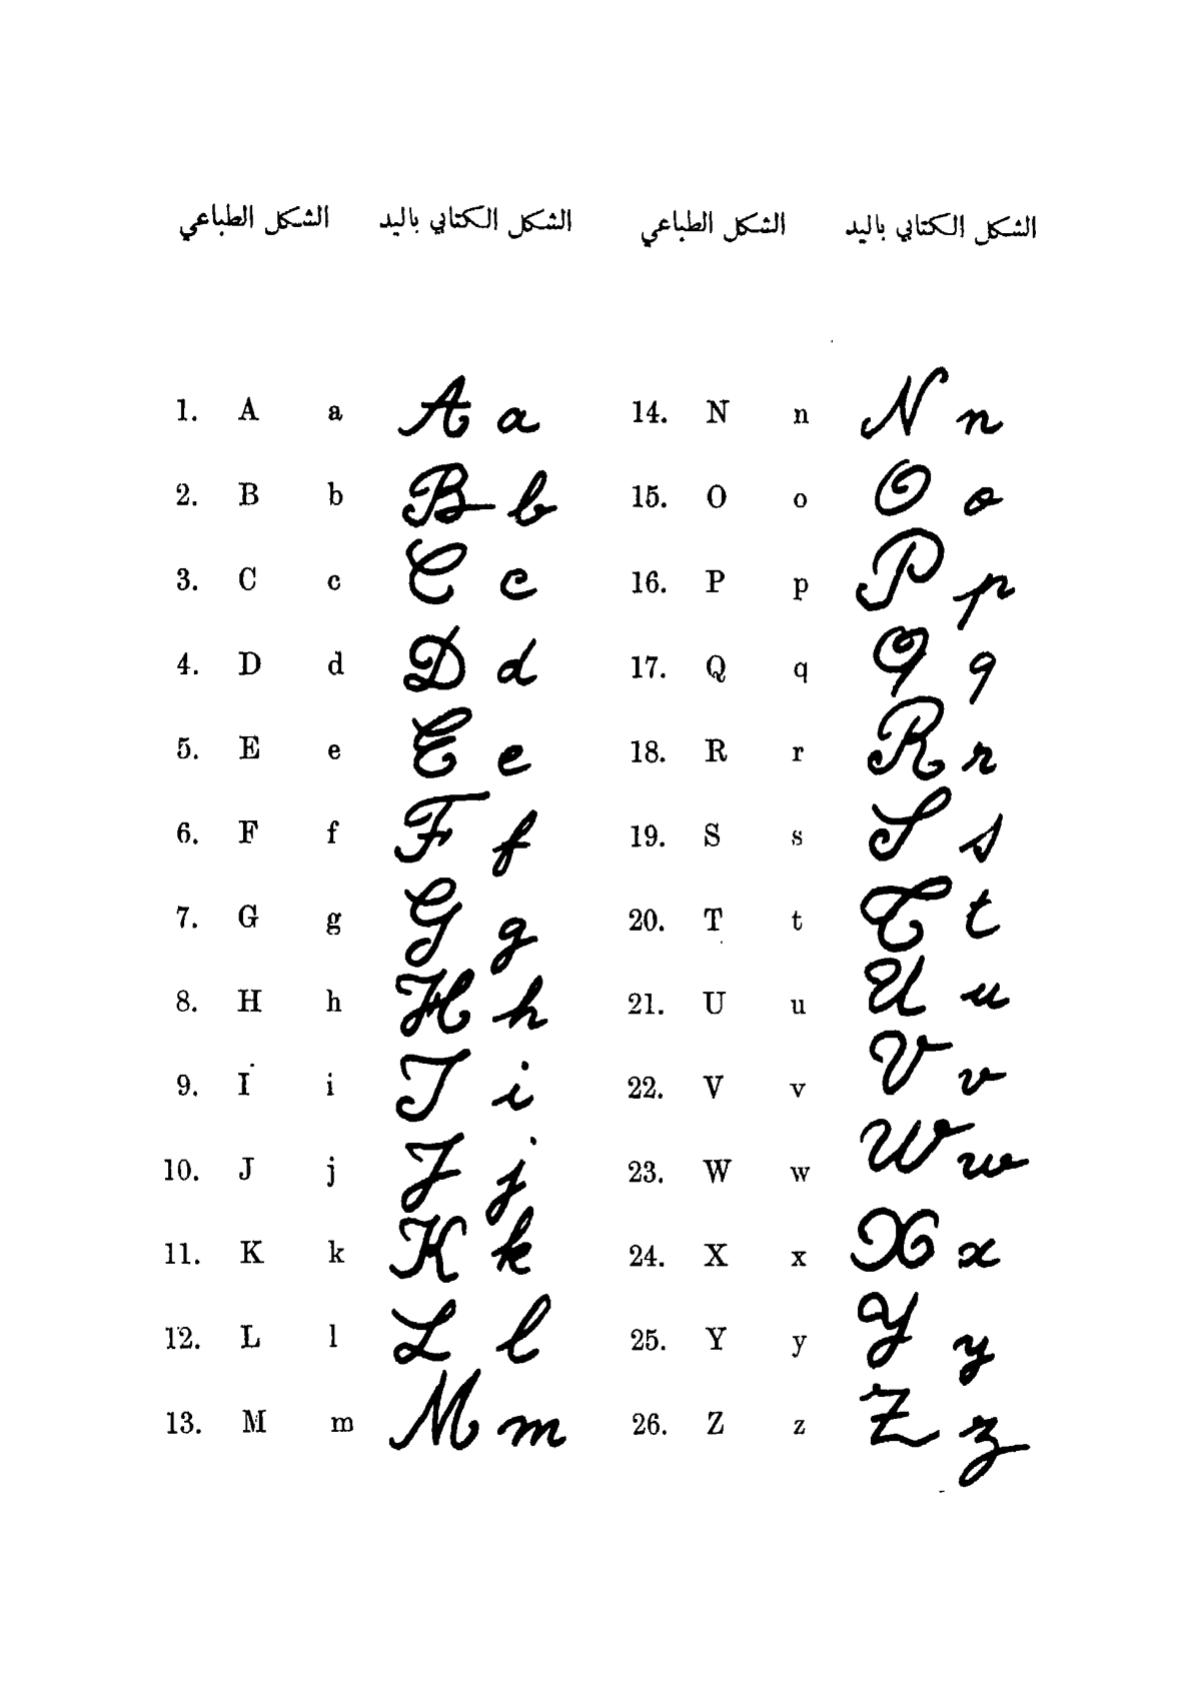 الشكل الطباعي الشكل الكتابي باليد الشكل الطباعي الشكل الكتابي باليد
1. A a A a 14. N n N n
2. B b B b 15. O o O o
3. C c C c 16. P p P p
4. D d D d 17. Q q Q q
5. E e E e 18. R r R r
6. F f F f 19. S s S s
7. G g G g 20. T t T t
8. H h H h 21. U u U u
9. I i I i 22. V v V v
10. J j J j 23. W w W w
11. K k K k 24. X x X x
12. L l L l 25. Y y Y y
13. M m M m 26. Z z Z z